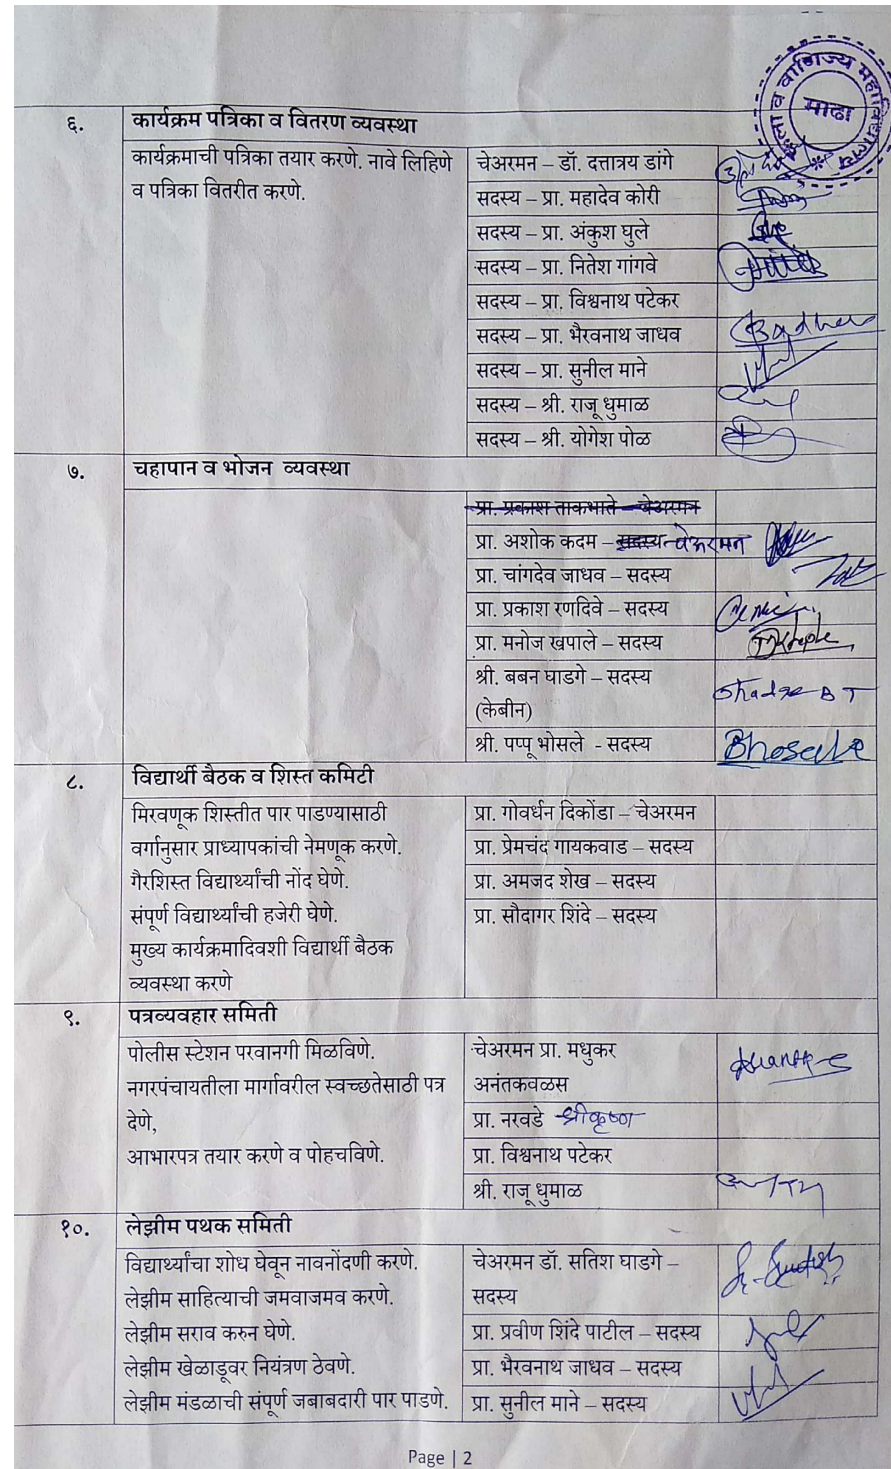 कला व वाणिज्य महाविद्यालय
माढा
६. कार्यक्रम पत्रिका व वितरण व्यवस्था
कार्यक्रमाची पत्रिका तयार करणे. नावे लिहिणे
व पत्रिका वितरीत करणे.
चेअरमन – डॉ. दत्तात्रय डांगे
सदस्य – प्रा. महादेव कोरी
सदस्य – प्रा. अंकुश घुले
सदस्य – प्रा. नितेश गांगवे
सदस्य – प्रा. विश्वनाथ पटेकर
सदस्य – प्रा. भैरवनाथ जाधव
सदस्य – प्रा. सुनील माने
सदस्य – श्री. राजू धुमाळ
सदस्य – श्री. योगेश पोळ
७. चहापान व भोजन व्यवस्था
प्रा. प्रकाश ताकभाते – चेअरमन
प्रा. अशोक कदम – सदस्य - चेअरमन
प्रा. चांगदेव जाधव – सदस्य
प्रा. प्रकाश रणदिवे – सदस्य
प्रा. मनोज खपाले – सदस्य
श्री. बबन घाडगे – सदस्य
(केबीन)
Ghadge B T
श्री. पप्पू भोसले - सदस्य
Bhosale
८. विद्यार्थी बैठक व शिस्त कमिटी
मिरवणूक शिस्तीत पार पाडण्यासाठी
वर्गानुसार प्राध्यापकांची नेमणूक करणे.
गैरशिस्त विद्यार्थ्यांची नोंद घेणे.
संपूर्ण विद्यार्थ्यांची हजेरी घेणे.
मुख्य कार्यक्रमादिवशी विद्यार्थी बैठक
व्यवस्था करणे
प्रा. गोवर्धन दिकोंडा – चेअरमन
प्रा. प्रेमचंद गायकवाड – सदस्य
प्रा. अमजद शेख – सदस्य
प्रा. सौदागर शिंदे – सदस्य
९. पत्रव्यवहार समिती
पोलीस स्टेशन परवानगी मिळविणे.
नगरपंचायतीला मार्गावरील स्वच्छतेसाठी पत्र
देणे,
आभारपत्र तयार करणे व पोहचविणे.
चेअरमन प्रा. मधुकर
अनंतकवळस
प्रा. नरवडे श्रीकृष्ण
प्रा. विश्वनाथ पटेकर
श्री. राजू धुमाळ
१०. लेझीम पथक समिती
विद्यार्थ्यांचा शोध घेवून नावनोंदणी करणे.
लेझीम साहित्याची जमवाजमव करणे.
लेझीम सराव करुन घेणे.
लेझीम खेळाडूवर नियंत्रण ठेवणे.
लेझीम मंडळाची संपूर्ण जबाबदारी पार पाडणे.
चेअरमन डॉ. सतिश घाडगे –
सदस्य
प्रा. प्रवीण शिंदे पाटील – सदस्य
प्रा. भैरवनाथ जाधव – सदस्य
प्रा. सुनील माने – सदस्य
Page | 2